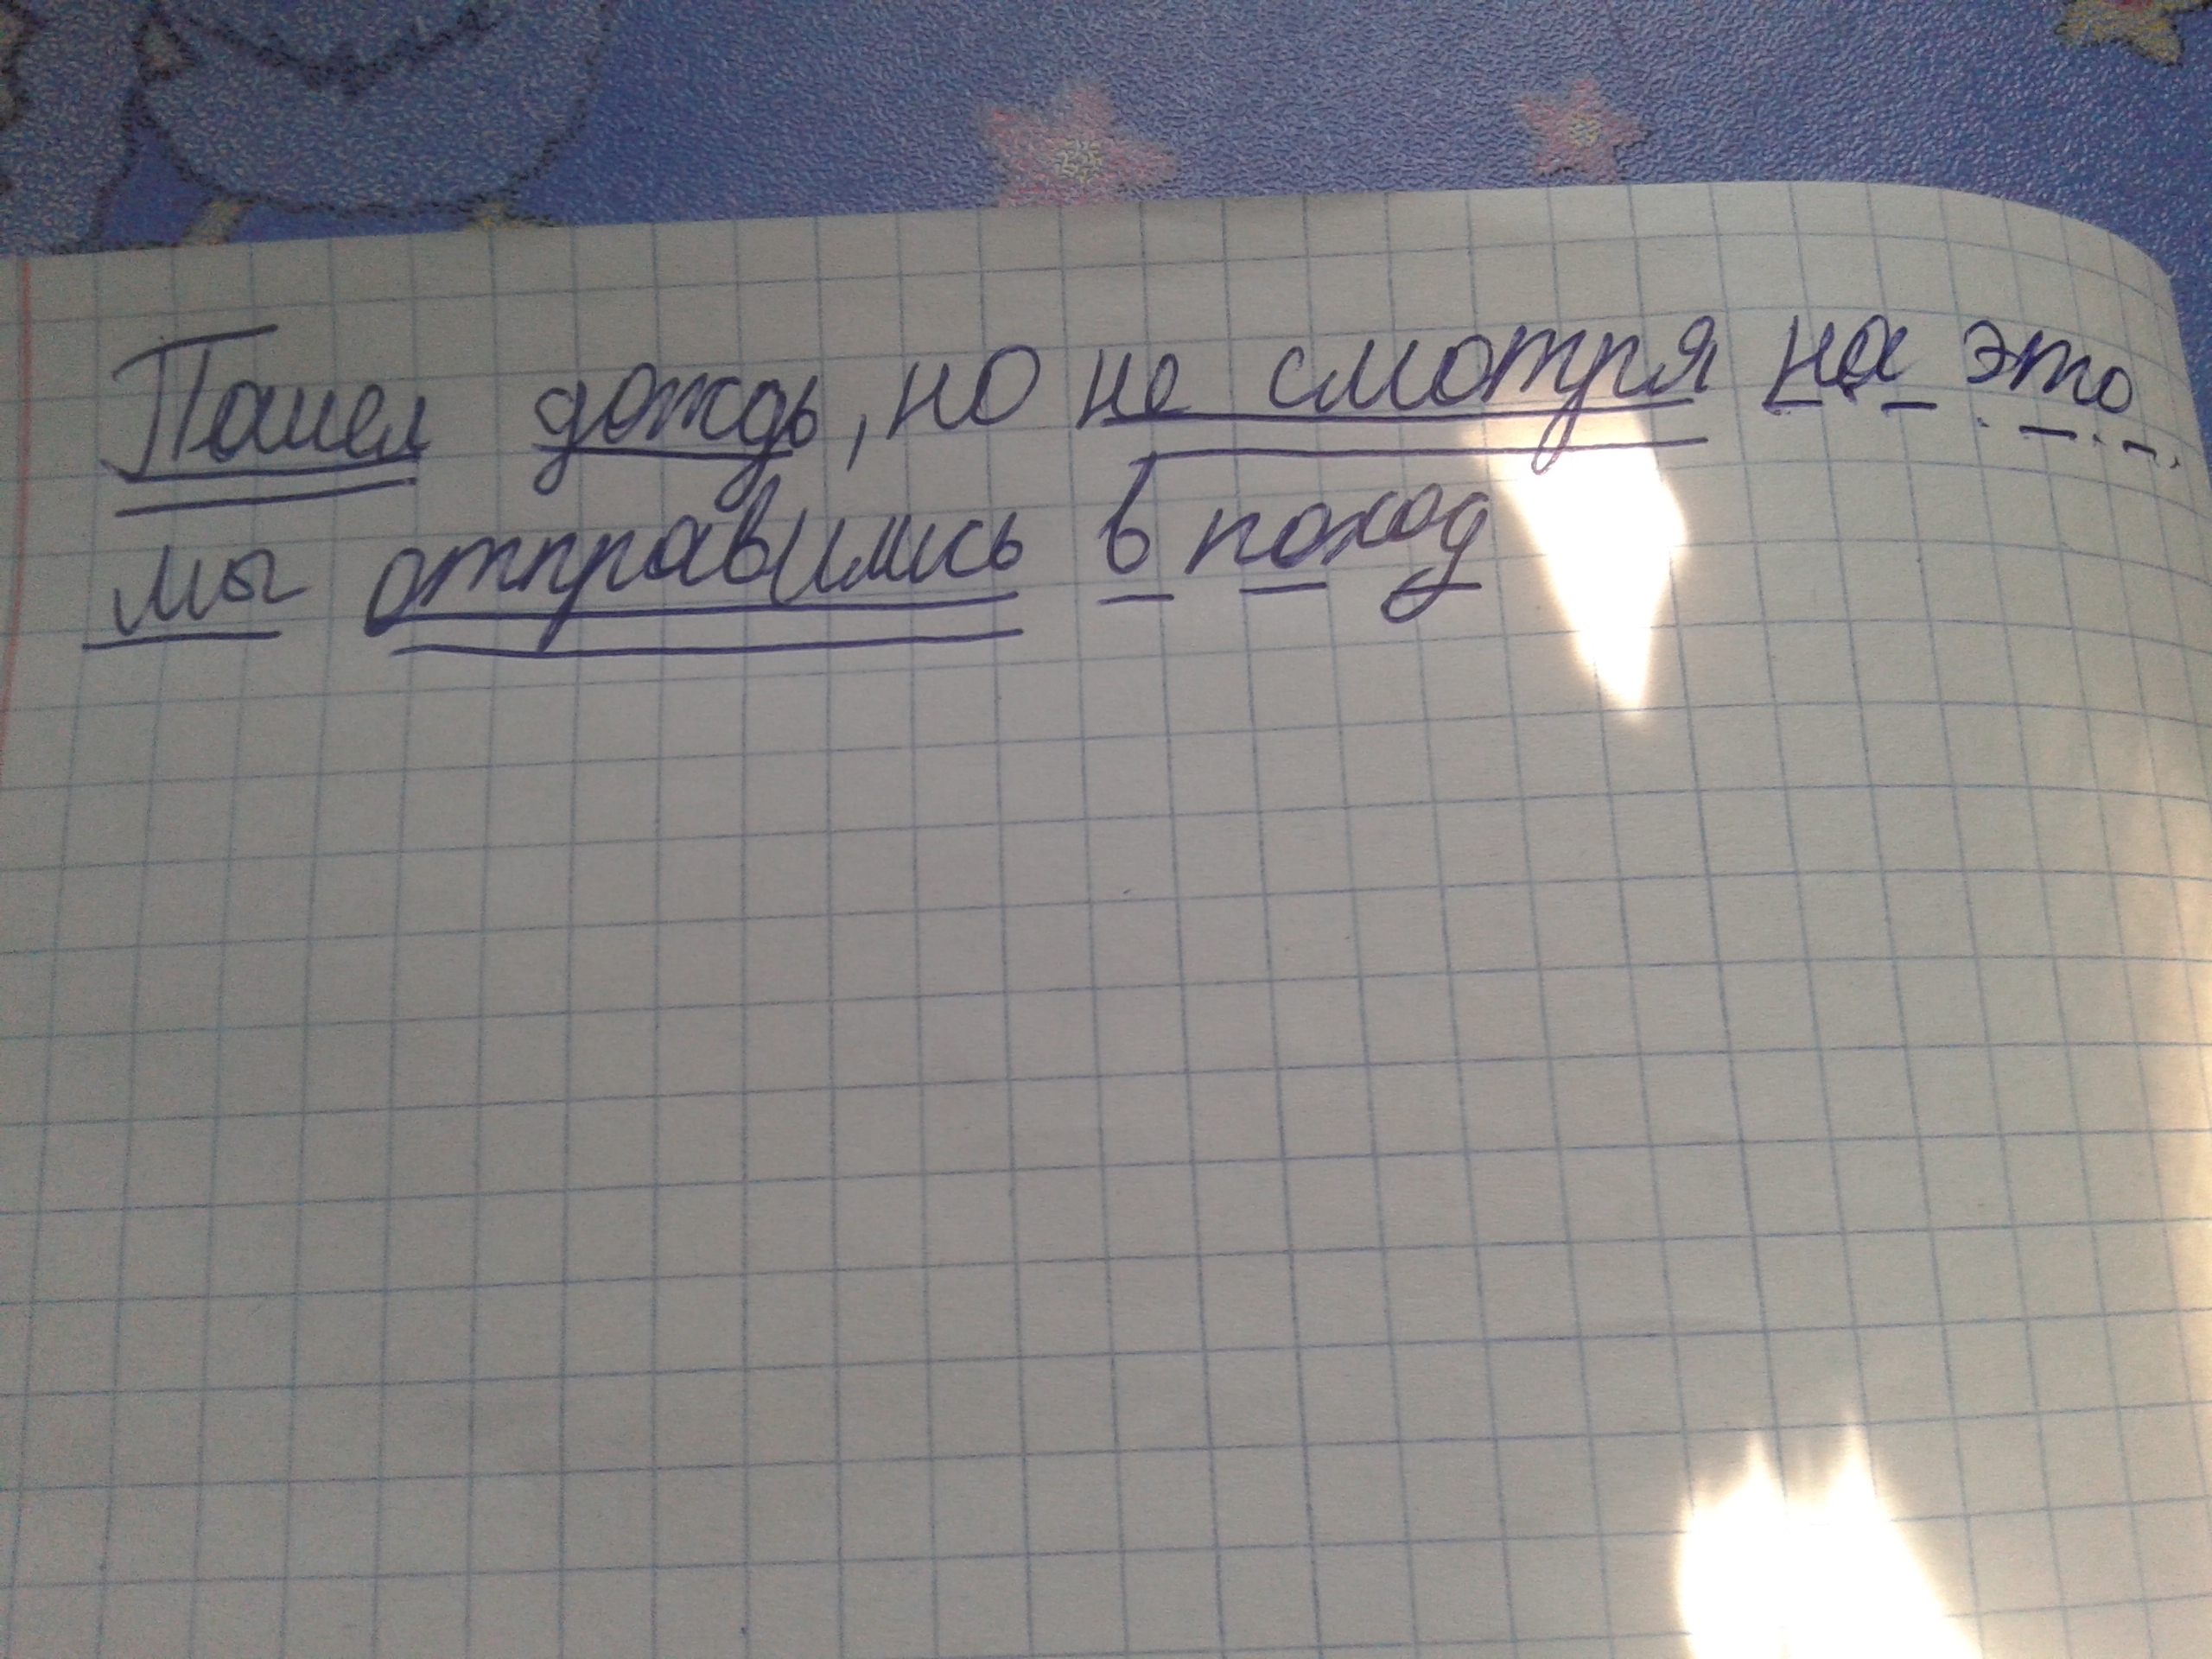 Пошел дождь, но не смотря на это
мы отправились в поход